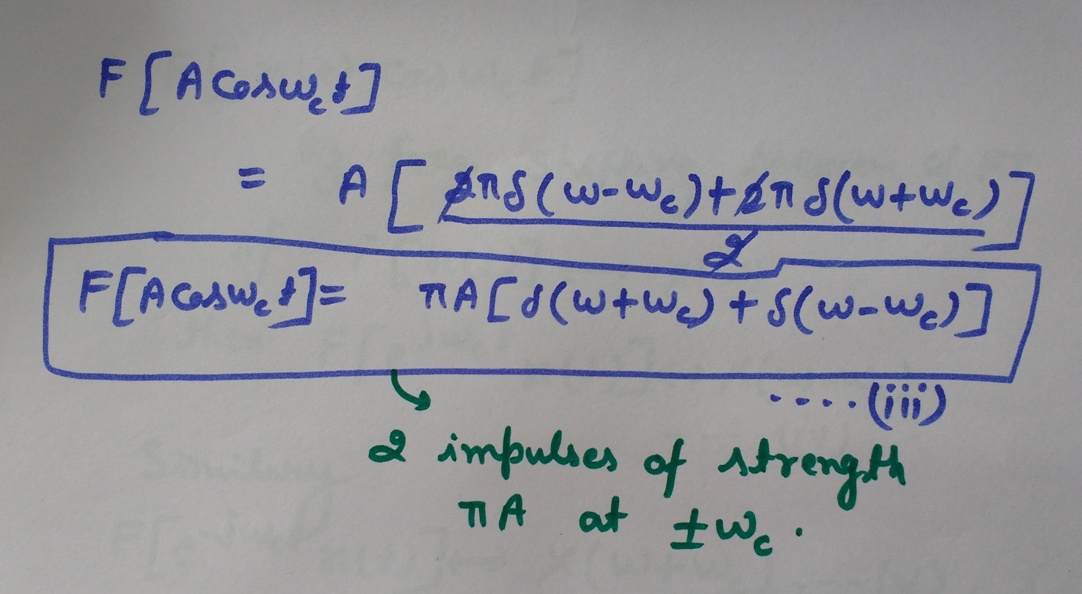 F[Acosω_c t]
= A[2πδ(ω-ω_c)+2πδ(ω+ω_c)]
2
F[Acosω_c t]= πA[δ(ω+ω_c)+δ(ω-ω_c)]
....(iii)
2 impulses of strength
πA at ±ω_c.